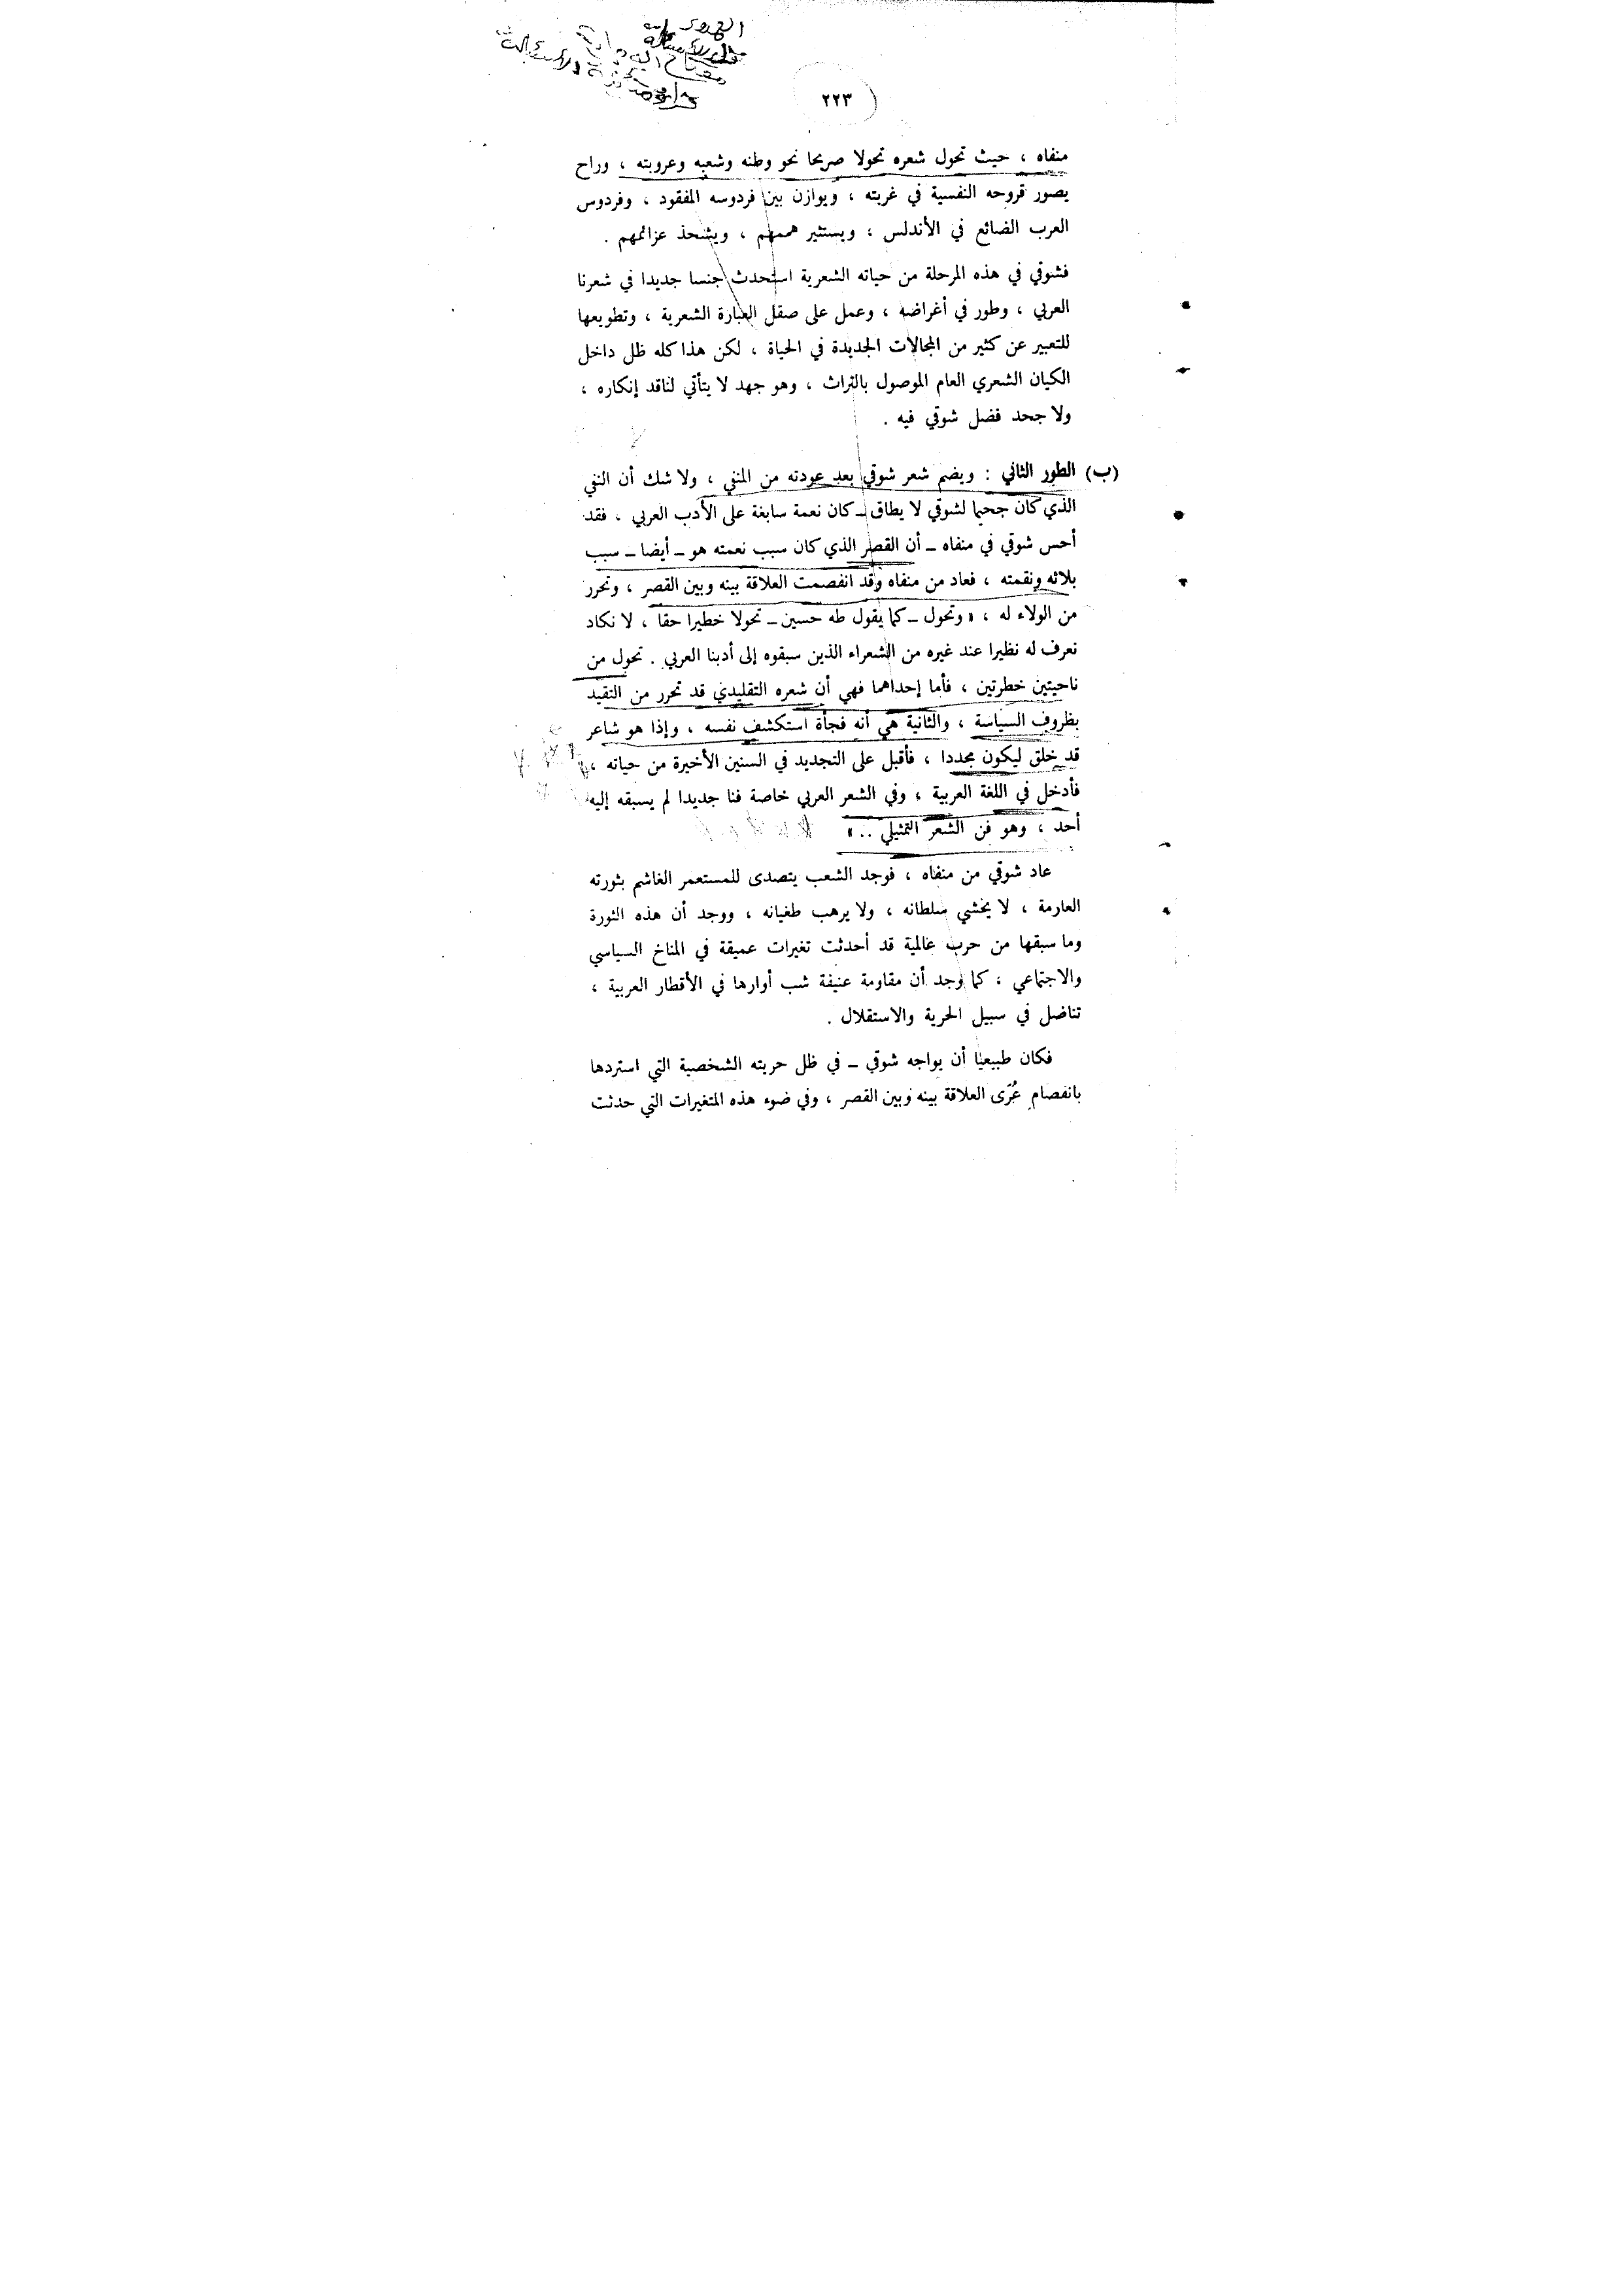 ٢٢٣
منفاه ، حيث تحول شعره تحولا صريحا نحو وطنه وشعبه وعروبته ، وراح
يصور قروحه النفسية في غربته ، ويوازن بين فردوسه المفقود ، وفردوس
العرب الضائع في الأندلس ، ويستثير هممهم ، ويشحذ عزائمهم .
فشوقي في هذه المرحلة من حياته الشعرية استحدث جنسا جديدا في شعرنا
العربي ، وطور في أغراضه ، وعمل على صقل العبارة الشعرية ، وتطويعها
للتعبير عن كثير من المجالات الجديدة في الحياة ، لكن هذا كله ظل داخل
الكيان الشعري العام الموصول بالتراث ، وهو جهد لا يتأتي لناقد إنكاره ،
ولا جحد فضل شوقي فيه .
(ب) الطور الثاني : ويضم شعر شوقي بعد عودته من المنفي ، ولا شك أن النفي
الذي كان جحيما لشوقي لا يطاق ــ كان نعمة سابغة على الأدب العربي ، فقد
أحس شوقي في منفاه ــ أن القصر الذي كان سبب نعمته هو ــ أيضا ــ سبب
بلائه ونقمته ، فعاد من منفاه وقد انفصمت العلاقة بينه وبين القصر ، وتحرر
من الولاء له ، « وتحول ــ كما يقول طه حسين ــ تحولا خطيرا حقا ، لا نكاد
نعرف له نظيرا عند غيره من الشعراء الذين سبقوه إلى أدبنا العربي . تحول من
ناحيتين خطرتين ، فأما إحداهما فهي أن شعره التقليدي قد تحرر من التقيد
بظروف السياسة ، والثانية هي أنه فجأة استكشف نفسه ، وإذا هو شاعر
قد خلق ليكون مجددا ، فأقبل على التجديد في السنين الأخيرة من حياته ،
فأدخل في اللغة العربية ، وفي الشعر العربي خاصة فنا جديدا لم يسبقه إليه
أحد ، وهو فن الشعر التمثيلي .. »
عاد شوقي من منفاه ، فوجد الشعب يتصدى للمستعمر الغاشم بثورته
العارمة ، لا يخشي سلطانه ، ولا يرهب طغيانه ، ووجد أن هذه الثورة
وما سبقها من حرب عالمية قد أحدثت تغيرات عميقة في المناخ السياسي
والاجتماعي ، كما وجد أن مقاومة عنيفة شب أوارها في الأقطار العربية ،
تناضل في سبيل الحرية والاستقلال .
فكان طبيعيا أن يواجه شوقي ــ في ظل حريته الشخصية التي استردها
بانفصام عُرَى العلاقة بينه وبين القصر ، وفي ضوء هذه المتغيرات التي حدثت